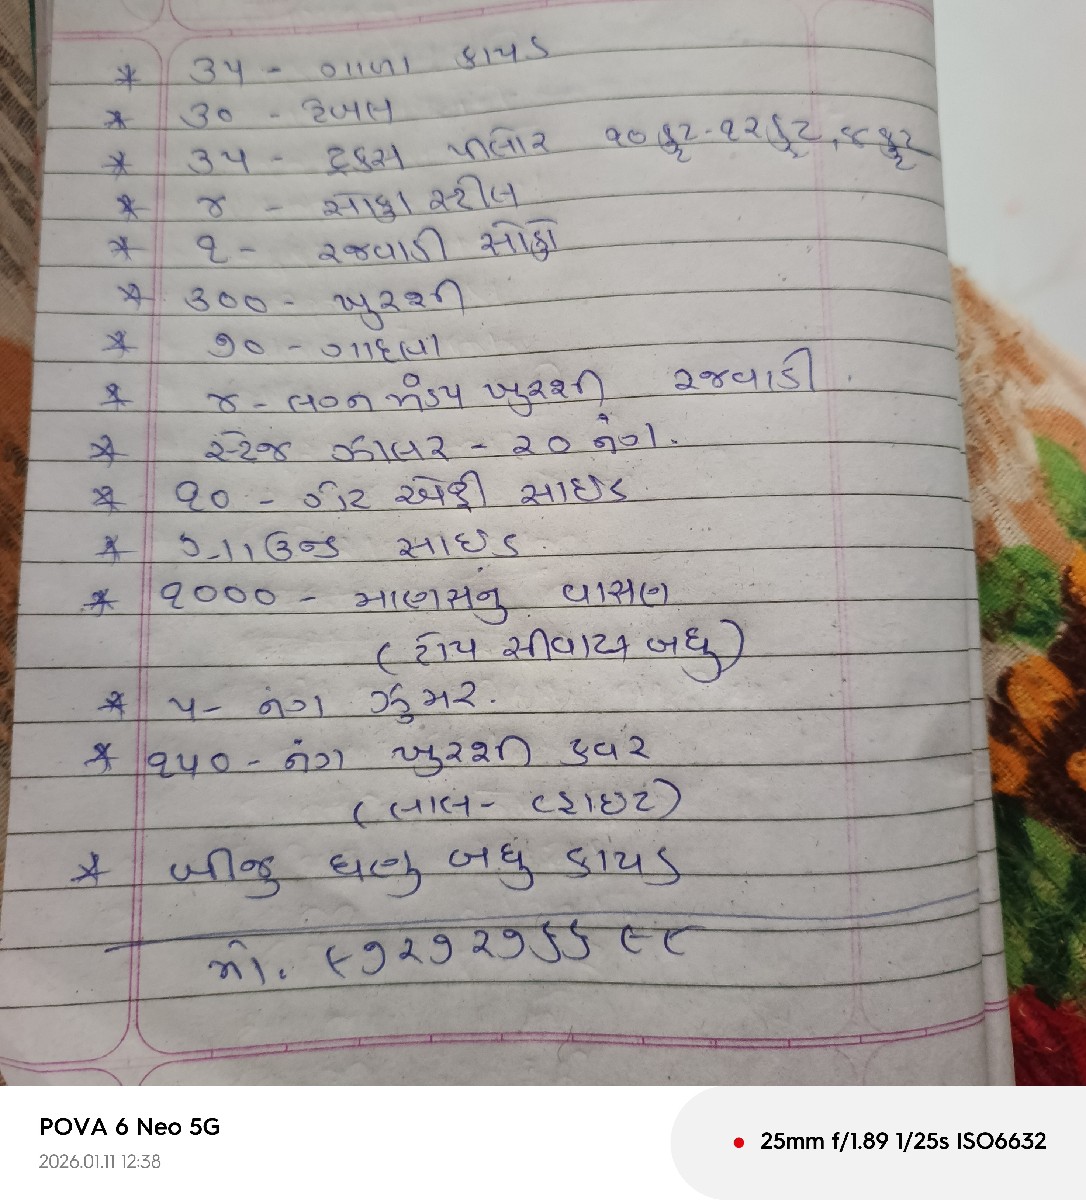 * ૩૫ - ગાળા કાપડ
* ૩૦ - ટેબલ
* ૩૫ - ટ્રસ પીલોર ૧૦ ફૂટ - ૧૨ ફૂટ, ૮ ફૂટ
* ૪ - સોફા સ્ટીલ
* ૧ - રજવાડી સોફો
* ૩૦૦ - ખુરશી
* ૭૦ - ગાદલા
* ૪ - લગ્ન મંડપ ખુરશી રજવાડી.
* સ્ટેજ ઝાલર - ૨૦ નંગ.
* ૧૦ - ગેટ એન્ટ્રી સાઇડ
* ગ્રાઉન્ડ સાઇડ.
* ૧૦૦૦ - માણસનું વાસણ
(ટોપ સીવાય બધુ)
* ૫ - નંગ ઝુમર.
* ૧૫૦ - નંગ ખુરશી કવર
(લાલ - વ્હાઇટ)
* બીજુ ઘણુ બધુ કાપડ
મો. ૯૭૨૭૨૭૬૬૯૯
POVA 6 Neo 5G
2026.01.11 12:38
25mm f/1.89 1/25s ISO6632